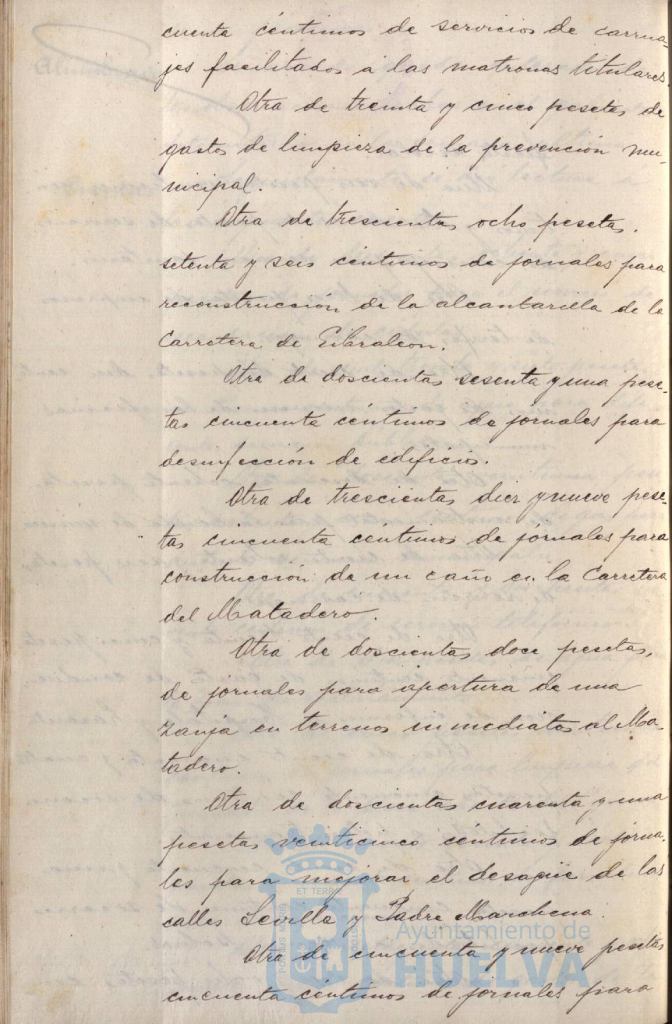 cuenta céntimos de servicios de carrua-
jes facilitados a las matronas titulares.
Otra de treinta y cinco pesetas de
gastos de limpieza de la prevención mu-
nicipal.
Otra de trescientas ocho pesetas,
setenta y seis céntimos de jornales para
reconstrucción de la alcantarilla de la
Carretera de Gibraleon.
Otra de doscientas sesenta y una pese-
tas cincuenta céntimos de jornales para
desinfección de edificios.
Otra de trescientas diez y nueve pese-
tas cincuenta céntimos de jornales para
construcción de un caño en la Carretera
del Matadero.
Otra de doscientas doce pesetas,
de jornales para apertura de una
zanja en terrenos inmediatos al Ma-
tadero.
Otra de doscientas cuarenta y una
pesetas veinticinco céntimos de jorna-
les para mejorar el desagüe de las
calles Sevilla y Padre Marchena.
Otra de cincuenta y nueve pesetas
cincuenta céntimos de jornales para
Ayuntamiento de
HUELVA